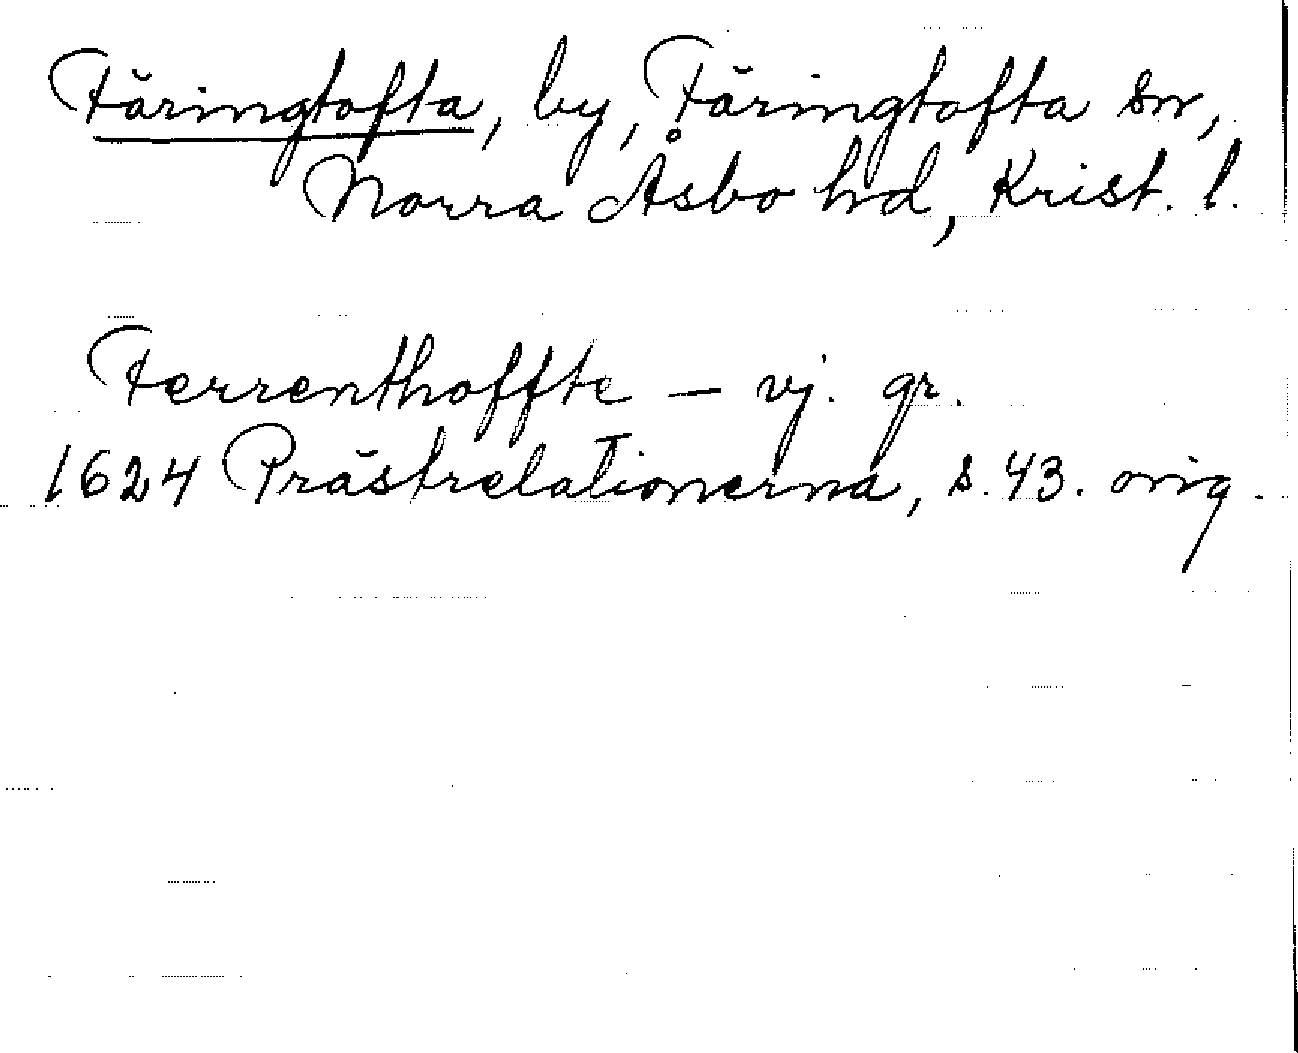 Färingtofta, by, Färingtofta sn,
Norra Åsbo hd, Krist. l.
Ferrenthoffte – vj. gr.
1624 Prästrelationerna, s. 43. orig.